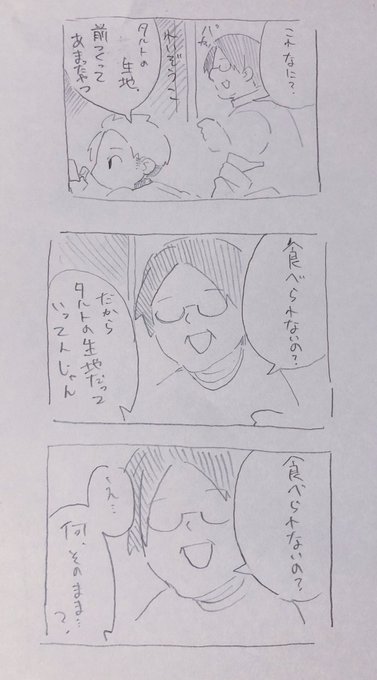 これなに?
れいぞうこ
タルトの
生地、
前つくって
あまったやつ
食べられないの?
だから
タルトの生地だって
いってんじゃん
食べられないの?
え…
何、そのまま…?